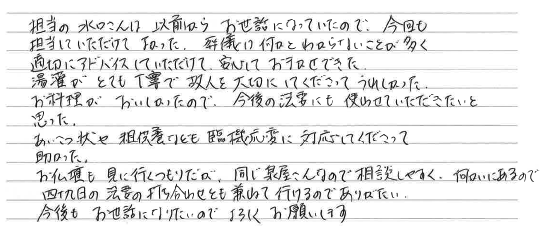 担当の水口さんは以前から お世話になっていたので、今回も
担当していただけて よかった。葬儀は何かとわからないことが多く
適切にアドバイスしていただけて、安心して お手伝いできた。
湯灌が とても丁寧で 故人を大切にしてくださって うれしかった。
お料理が おいしかったので、今後の法要にも 使わせていただきたいと
思った。
あいさつ状や 粗供養なども 臨機応変に 対応してくださって
助かった。
お仏壇も 見に行くつもりだが、同じ 泉屋さんなので 相談しやすく、向かいにあるので
四九日の 法要の打ち合わせとも 兼ねて 行けるのでありがたい。
今後も お世話になりたいので よろしく お願いします